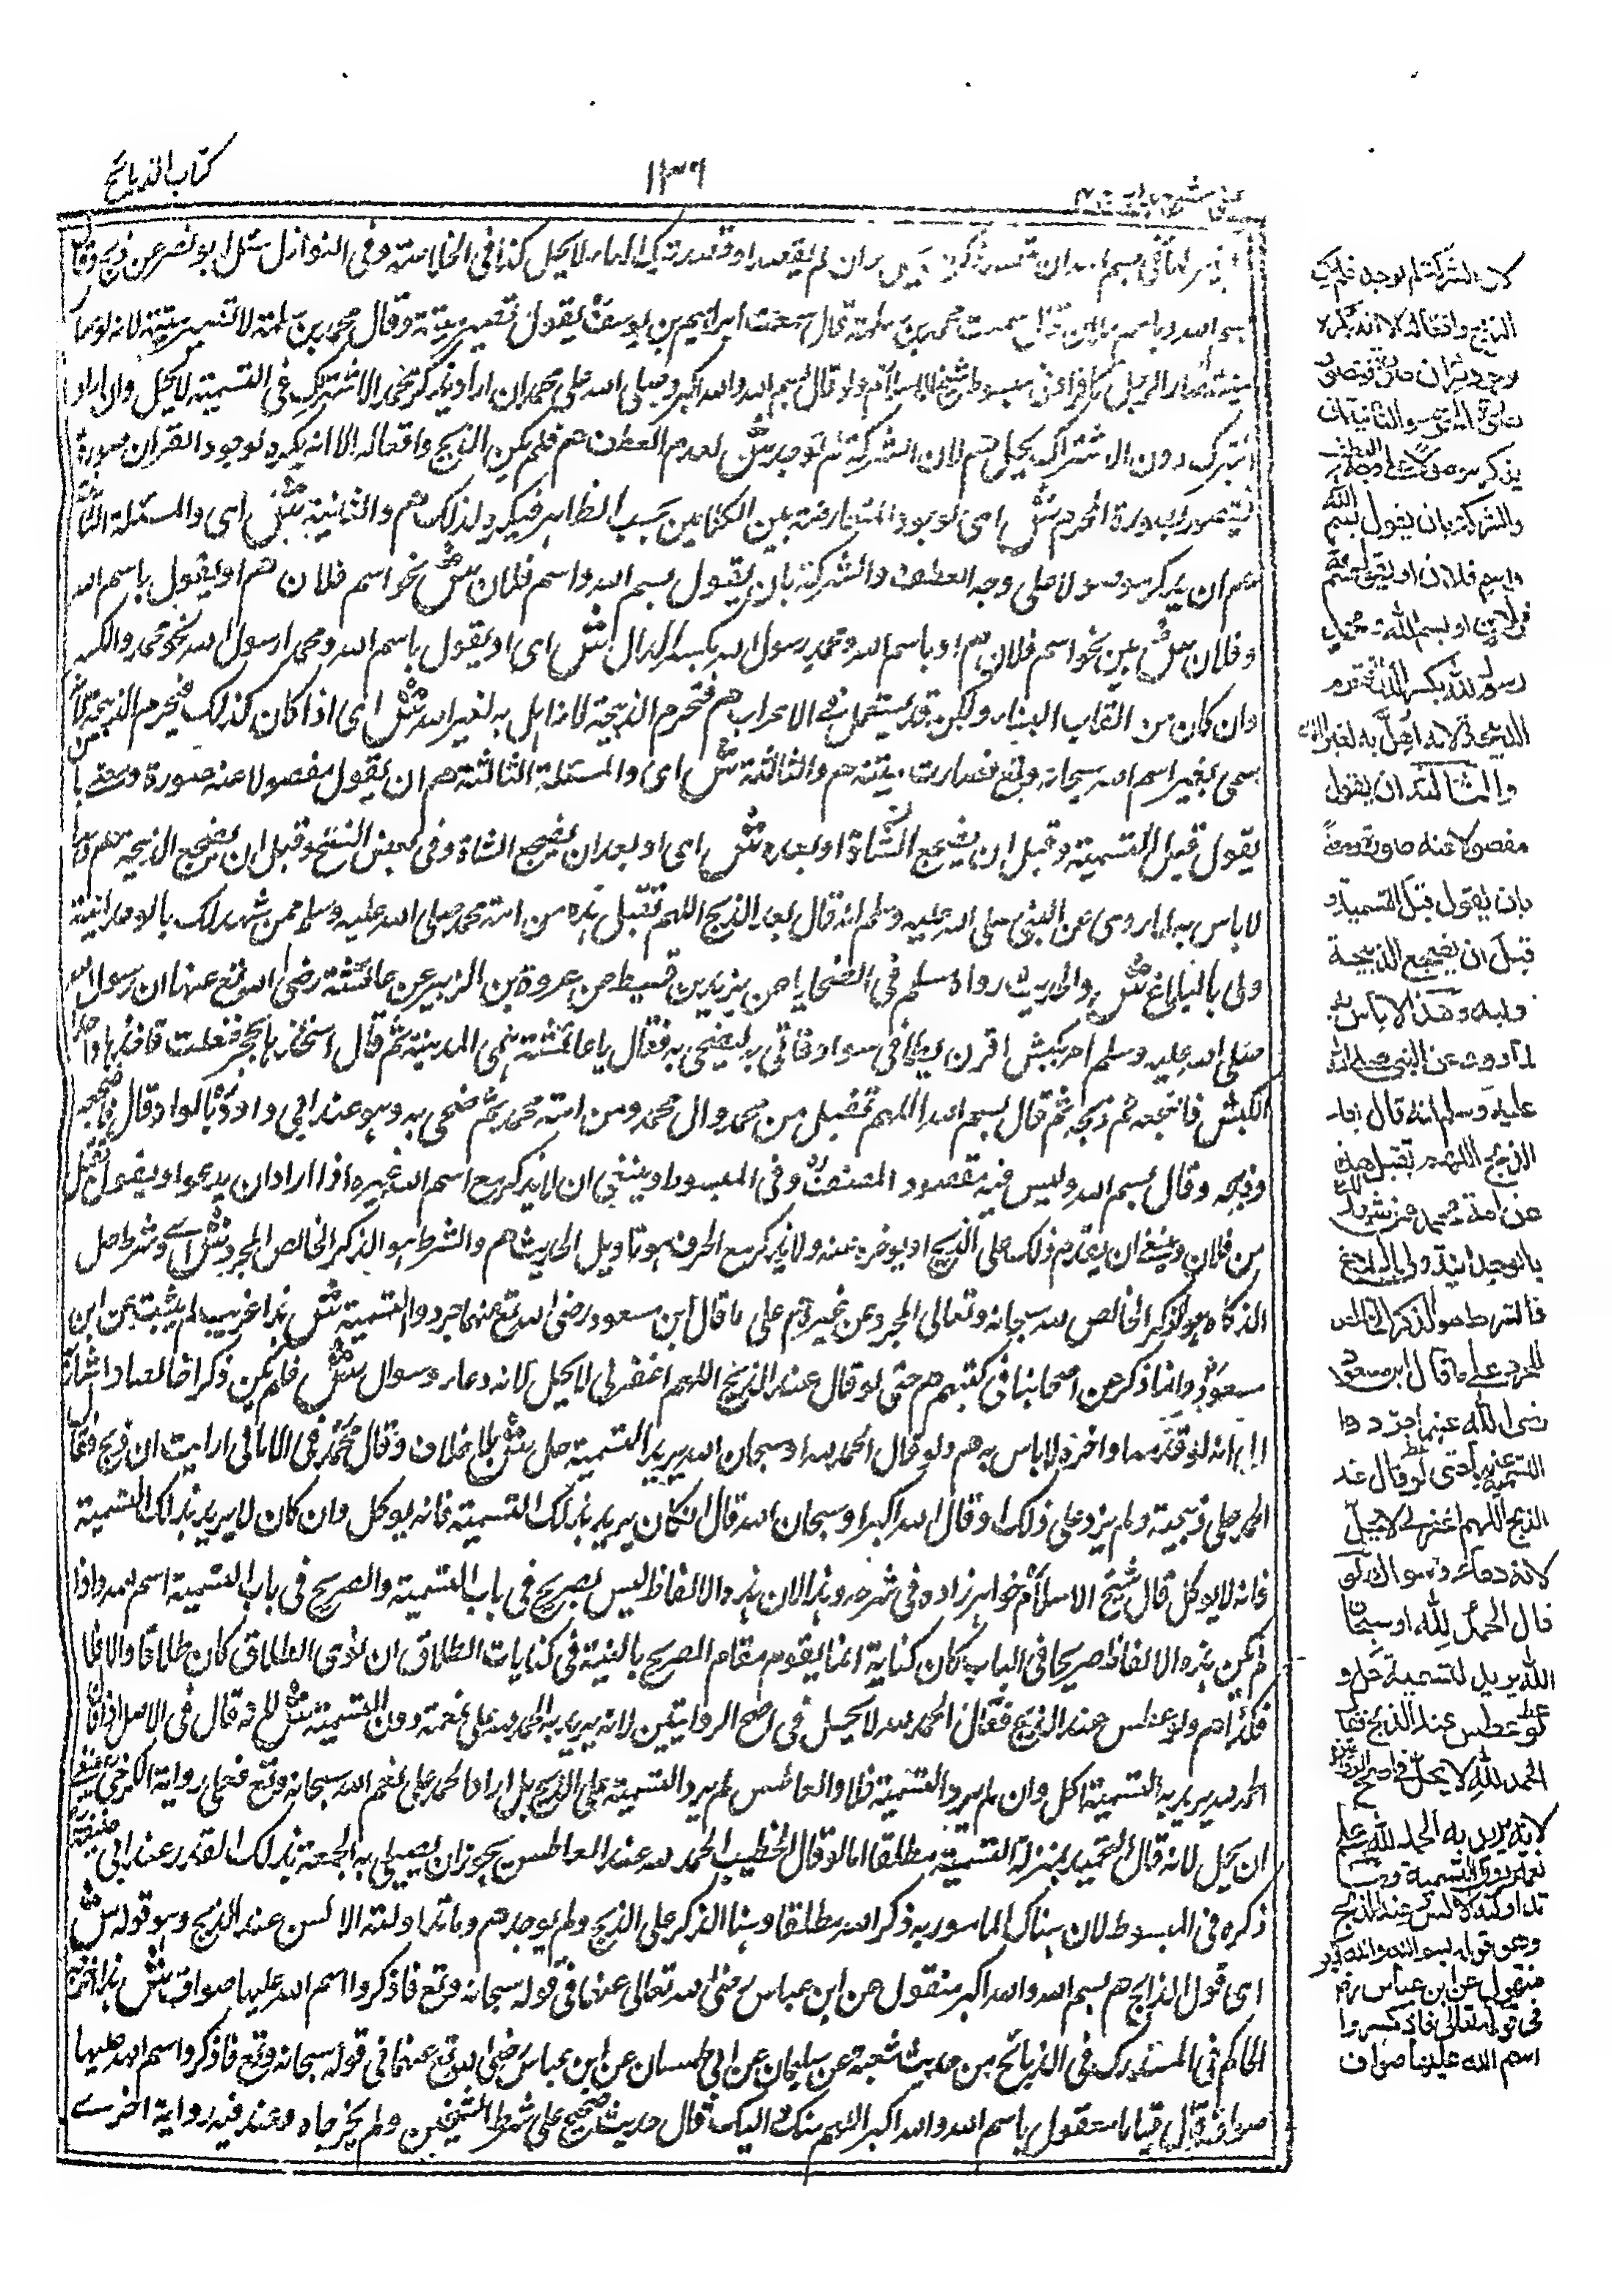 كتاب الذبائح
١٣٩
وان لم يقصد او قصد ترك الهاء لا يحل كذا فى الخلاصة وفى النوازل سئل ابو نصر عن ذبح وقال
بسم الله وباسم فلان قال سمعت محمد بن سلمة قال سمعت ابراهيم بن يوسف يقول تصير ميتة وقال محمد بن سلمة لا تصير ميتة لانه لو صار
ميتة لصار الرجل كافرا وفى مبسوط شيخ الاسلام ولو قال بسم الله والله اكبر وصلى الله على محمد ان اراد بذكر محمد الاشتراك فى التسمية لا يحل وان اراد
التبرك دون الاشتراك يحل هم لان الشركة لم توجد ش لعدم العطف هم فلم يكن الذبح واقعا له الا انه يكره لوجود القران صورة
فيتصور بصورة المحرم ش اى لوجود المقارنة بين الكلامين بحسب الظاهر فيكره لذلك هم والثانية ش اى والمسئلة الثانية
هم ان يذكر موصولا على وجه العطف والشركة بان يقول بسم الله واسم فلان ش نحو اسم فلان هم او يقول باسم الله
وفلان ش من نحو اسم فلان هم او باسم الله ومحمد رسول الله بكسر الدال ش اى او يقول باسم الله ومحمد رسول الله نحو محمد والكسر
وان كان من القاب البناء ولكن قد يستعمل فى الاعراب هم فتحرم الذبيحة لانه اهل به لغير الله ش اى اذا كان كذلك فتحرم الذبيحة لانه
سمى بغير اسم الله سبحانه وتع فصارت ميتة هم والثالثة ش اى والمسئلة الثالثة هم ان يقول مفصولا عنه صورة ومعنى بان
يقول قبل التسمية وقبل ان يضجع الشاة او بعده ش اى او بعد ان يضجع الشاة وفى بعض النسخ وقبل ان يضجع الذبيحة هم وهذا
لا باس به لما روى عن النبى صلى الله عليه وسلم انه قال بعد الذبح اللهم تقبل هذه من امة محمد صلى الله عليه وسلم ممن شهد لك بالوحدانية
ولى بالبلاغ ش والحديث رواه مسلم فى الضحايا عن يزيد بن قسيط عن عروة بن الزبير عن عائشة رضى الله تع عنها ان رسول الله
صلى الله عليه وسلم امر بكبش اقرن يطأ فى سواد فاتى به ليضحى به فقال يا عائشة هلمى المدية ثم قال اشحذيها بحجر ففعلت فاخذها واخذ
الكبش فاضجعه ثم ذبحه ثم قال بسم الله اللهم تقبل من محمد وال محمد ومن امة محمد ثم ضحى به وهو عند ابى داود بالواو قال فاضجعه
وذبحه وقال بسم الله وليس فيه مقصود المصنف وفى المبسوط وينبغى ان لا يذكر مع اسم الله غيره اذا اراد ان يدعو او يقول تقبل
من فلان وينبغى ان يقدم ذلك على الذبح او يوخره عنه ولا يذكر مع الحرف هو تاويل الحديث هم والشرط هو الذكر الخالص المجرد ش اى وشرط حل
الذكاة هو الذكر الخالص لله سبحانه وتعالى المجرد عن غيره هم على ما قال ابن مسعود رضى الله تع عنهما جردوا التسمية ش هذا غريب لم يثبت عن ابن
مسعود وانما ذكر عن اصحابنا فى كتبهم هم حتى لو قال عند الذبح اللهم اغفر لى لا يحل لانه دعاء وسوال ش فلم يكن ذكرا خالصا واشار
الى انه لو قدمها واخره لا باس به هم ولو قال الحمد لله او سبحان الله يريد التسمية حل ش بلا خلاف وقال محمد فى الامالى ارايت ان ذبح فقال
الحمد على ذبيحته ولم يزد على ذلك او قال الله اكبر او سبحان الله قال ان كان يريد بذلك التسمية فانه يوكل وان كان لا يريد بذلك التسمية
فانه لا يوكل قال شيخ الاسلام خواهر زاده فى شرحه وهذا لان هذه الالفاظ ليس بصريح فى باب التسمية والصريح فى باب التسمية اسم الله واذا
لم يكن هذه الالفاظ صريحا فى الباب كان كناية انما يقوم مقام الصريح بالنية فى كنايات الطلاق ان نوى الطلاق كان طلاقا والا فلا
فكذا هم ولو عطس عند الذبح فقال الحمد لله لا يحل فى اصح الروايتين لانه يريد به الحمد على نعمة دون التسمية ش قال فى الاصل اذا قال
الحمد لله يريد به التسمية اكل وان لم يرد التسمية فلا والعاطس لم يرد التسمية على الذبح بل اراد الحمد على نعم الله سبحانه وتع فعلى رواية الكرخى ينبغى
ان يحل لانه قال التحميد بمنزلة التسمية مطلقا اما لو قال الخطيب الحمد لله عند العاطس يجوز ان يصلى به الجمعة بذلك القدر عند ابى حنيفة
ذكره فى المبسوط لان هناك المامور به ذكر الله مطلقا وهنا الذكر على الذبح ولم يوجد هم وما تداولته الالسن عند الذبح وهو قوله ش
اى قول الذابح هم بسم الله والله اكبر منقول عن ابن عباس رضى الله تعالى عنهما فى قوله سبحانه وتع فاذكروا اسم الله عليها صواف ش هذا اخرجه
الحاكم فى المستدرك فى الذبائح من حديث شعبة عن سليمان عن ابى ظبيان عن ابن عباس رضى الله تع عنهما فى قوله سبحانه وتع فاذكروا اسم الله عليها
صواف قال قياما معقول باسم الله والله اكبر اللهم منك واليك قال حديث صحيح على شرط الشيخين ولم يخرجاه وعنده فيه رواية اخرى
لان الشركة لم توجد فلم يكن
الذبح واقعا له الا انه يكره
لوجود القران صورة فيتصور
بصورة المحرم والثانية ان
يذكر موصولا على وجه العطف
والشركة بان يقول بسم الله
واسم فلان او يقول بسم الله
وفلان او بسم الله ومحمد
رسول الله بكسر الدال فتحرم
الذبيحة لانه اهل به لغير الله
والثالثة ان يقول
مفصولا عنه صورة ومعنى
بان يقول قبل التسمية و
قبل ان يضجع الذبيحة
او بعده وهذا لا باس به
لما روى عن النبى صلى الله
عليه وسلم انه قال بعد
الذبح اللهم تقبل هذه
عن امة محمد ممن شهد لك
بالوحدانية ولى بالبلاغ
فالشرط هو الذكر الخالص
المجرد على ما قال ابن مسعود
رضى الله عنه جردوا
التسمية حتى لو قال عند
الذبح اللهم اغفر لى لا يحل
لانه دعاء وسوال ولو
قال الحمد لله او سبحان
الله يريد التسمية حل و
لو عطس عند الذبح فقال
الحمد لله لا يحل فى اصح الروايتين
لانه يريد به الحمد لله على
نعمه دون التسمية وما
تداولته الالسن عند الذبح
وهو قوله بسم الله والله اكبر
منقول عن ابن عباس رض
فى قوله تعالى فاذكروا
اسم الله عليها صواف